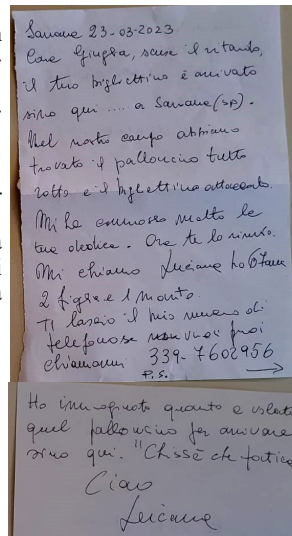 Sarzana 23-03-2023
Cara Giuglia, scusa il ritardo,
il tuo bigliettino è arrivato
sino qui .... a Sarzana (SP).
Nel nostro campo abbiamo
trovato il palloncino tutto
rotto e il bigliettino attaccato.
Mi ha commosso molto la
tua dedica. Ora te lo rinvio.
Mi chiamo Luciana ho 67 anni
2 figlie e 1 marito.
Ti lascio il mio numero di
telefono se vuoi puoi
chiamarmi 339-7602956
P.S.
Ho immaginato quanto è volato
quel palloncino per arrivare
sino qui. "Chissà che fatica
Ciao
Luciana